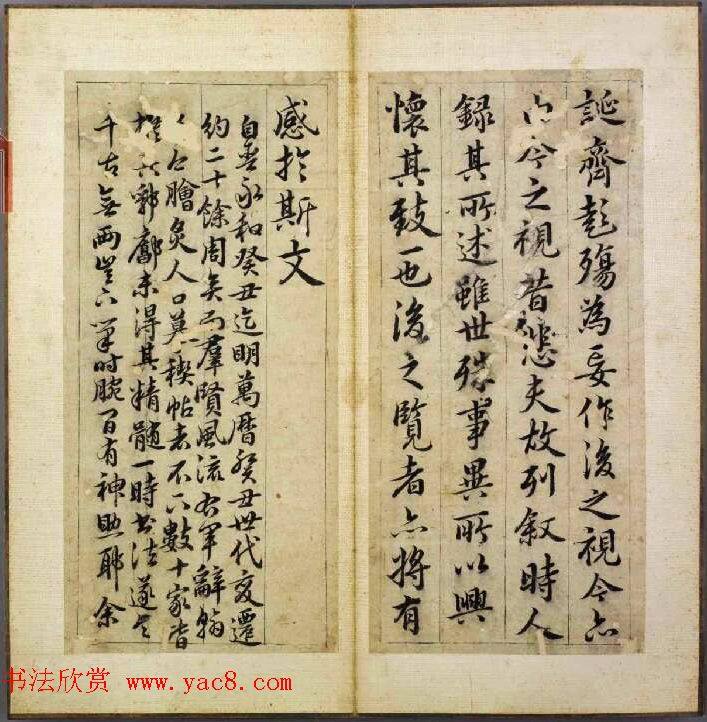 誕齊彭殤為妄作後之視今亦
由今之視昔悲夫故列叙時人
録其所述雖世殊事異所以興
懷其致一也後之覽者亦將有
感於斯文
自永和癸丑迄明萬曆癸丑世代變遷
約二十餘周矣而羣賢風流右軍辭翰
膾炙人口稧帖者不下數十家皆
郛廓未得其精髓一時書法遂
千古無兩豈下筆時腕有神助耶余
书法欣赏 www.yac8.com